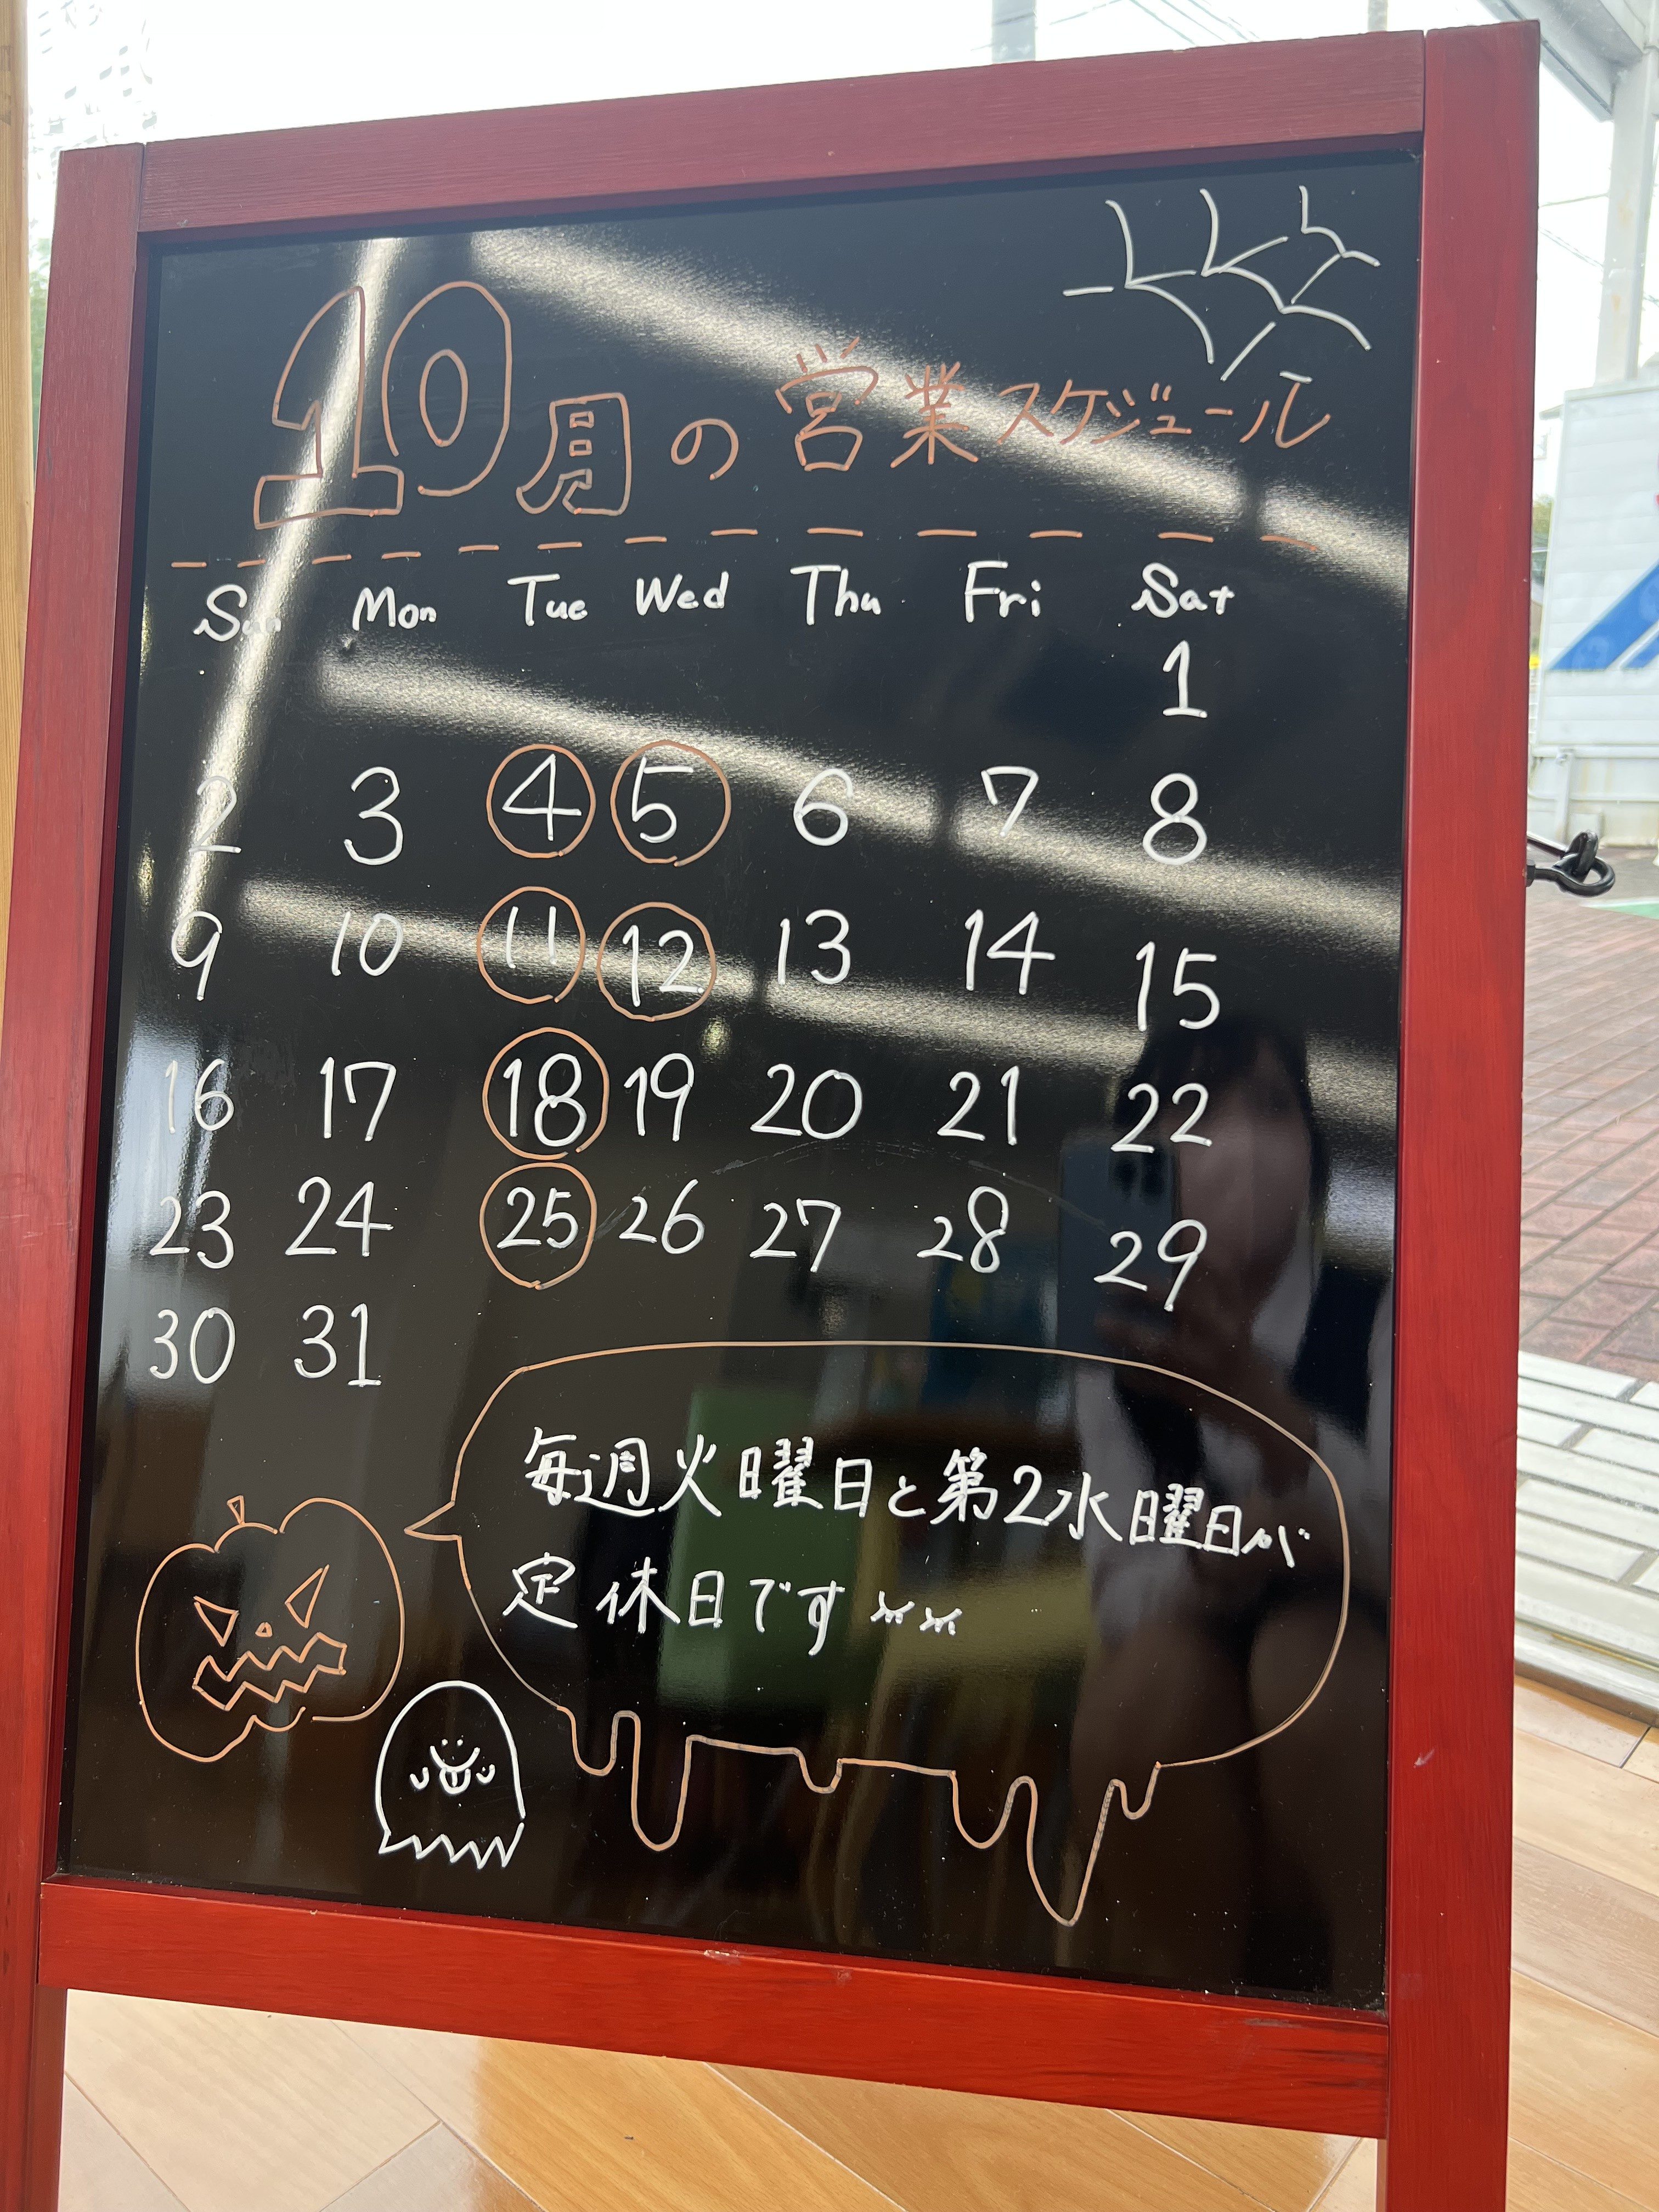 10月の営業スケジュール
Sun Mon Tue Wed Thu Fri Sat
1
2 3 4 5 6 7 8
9 10 11 12 13 14 15
16 17 18 19 20 21 22
23 24 25 26 27 28 29
30 31
毎週火曜日と第2水曜日が
定休日です